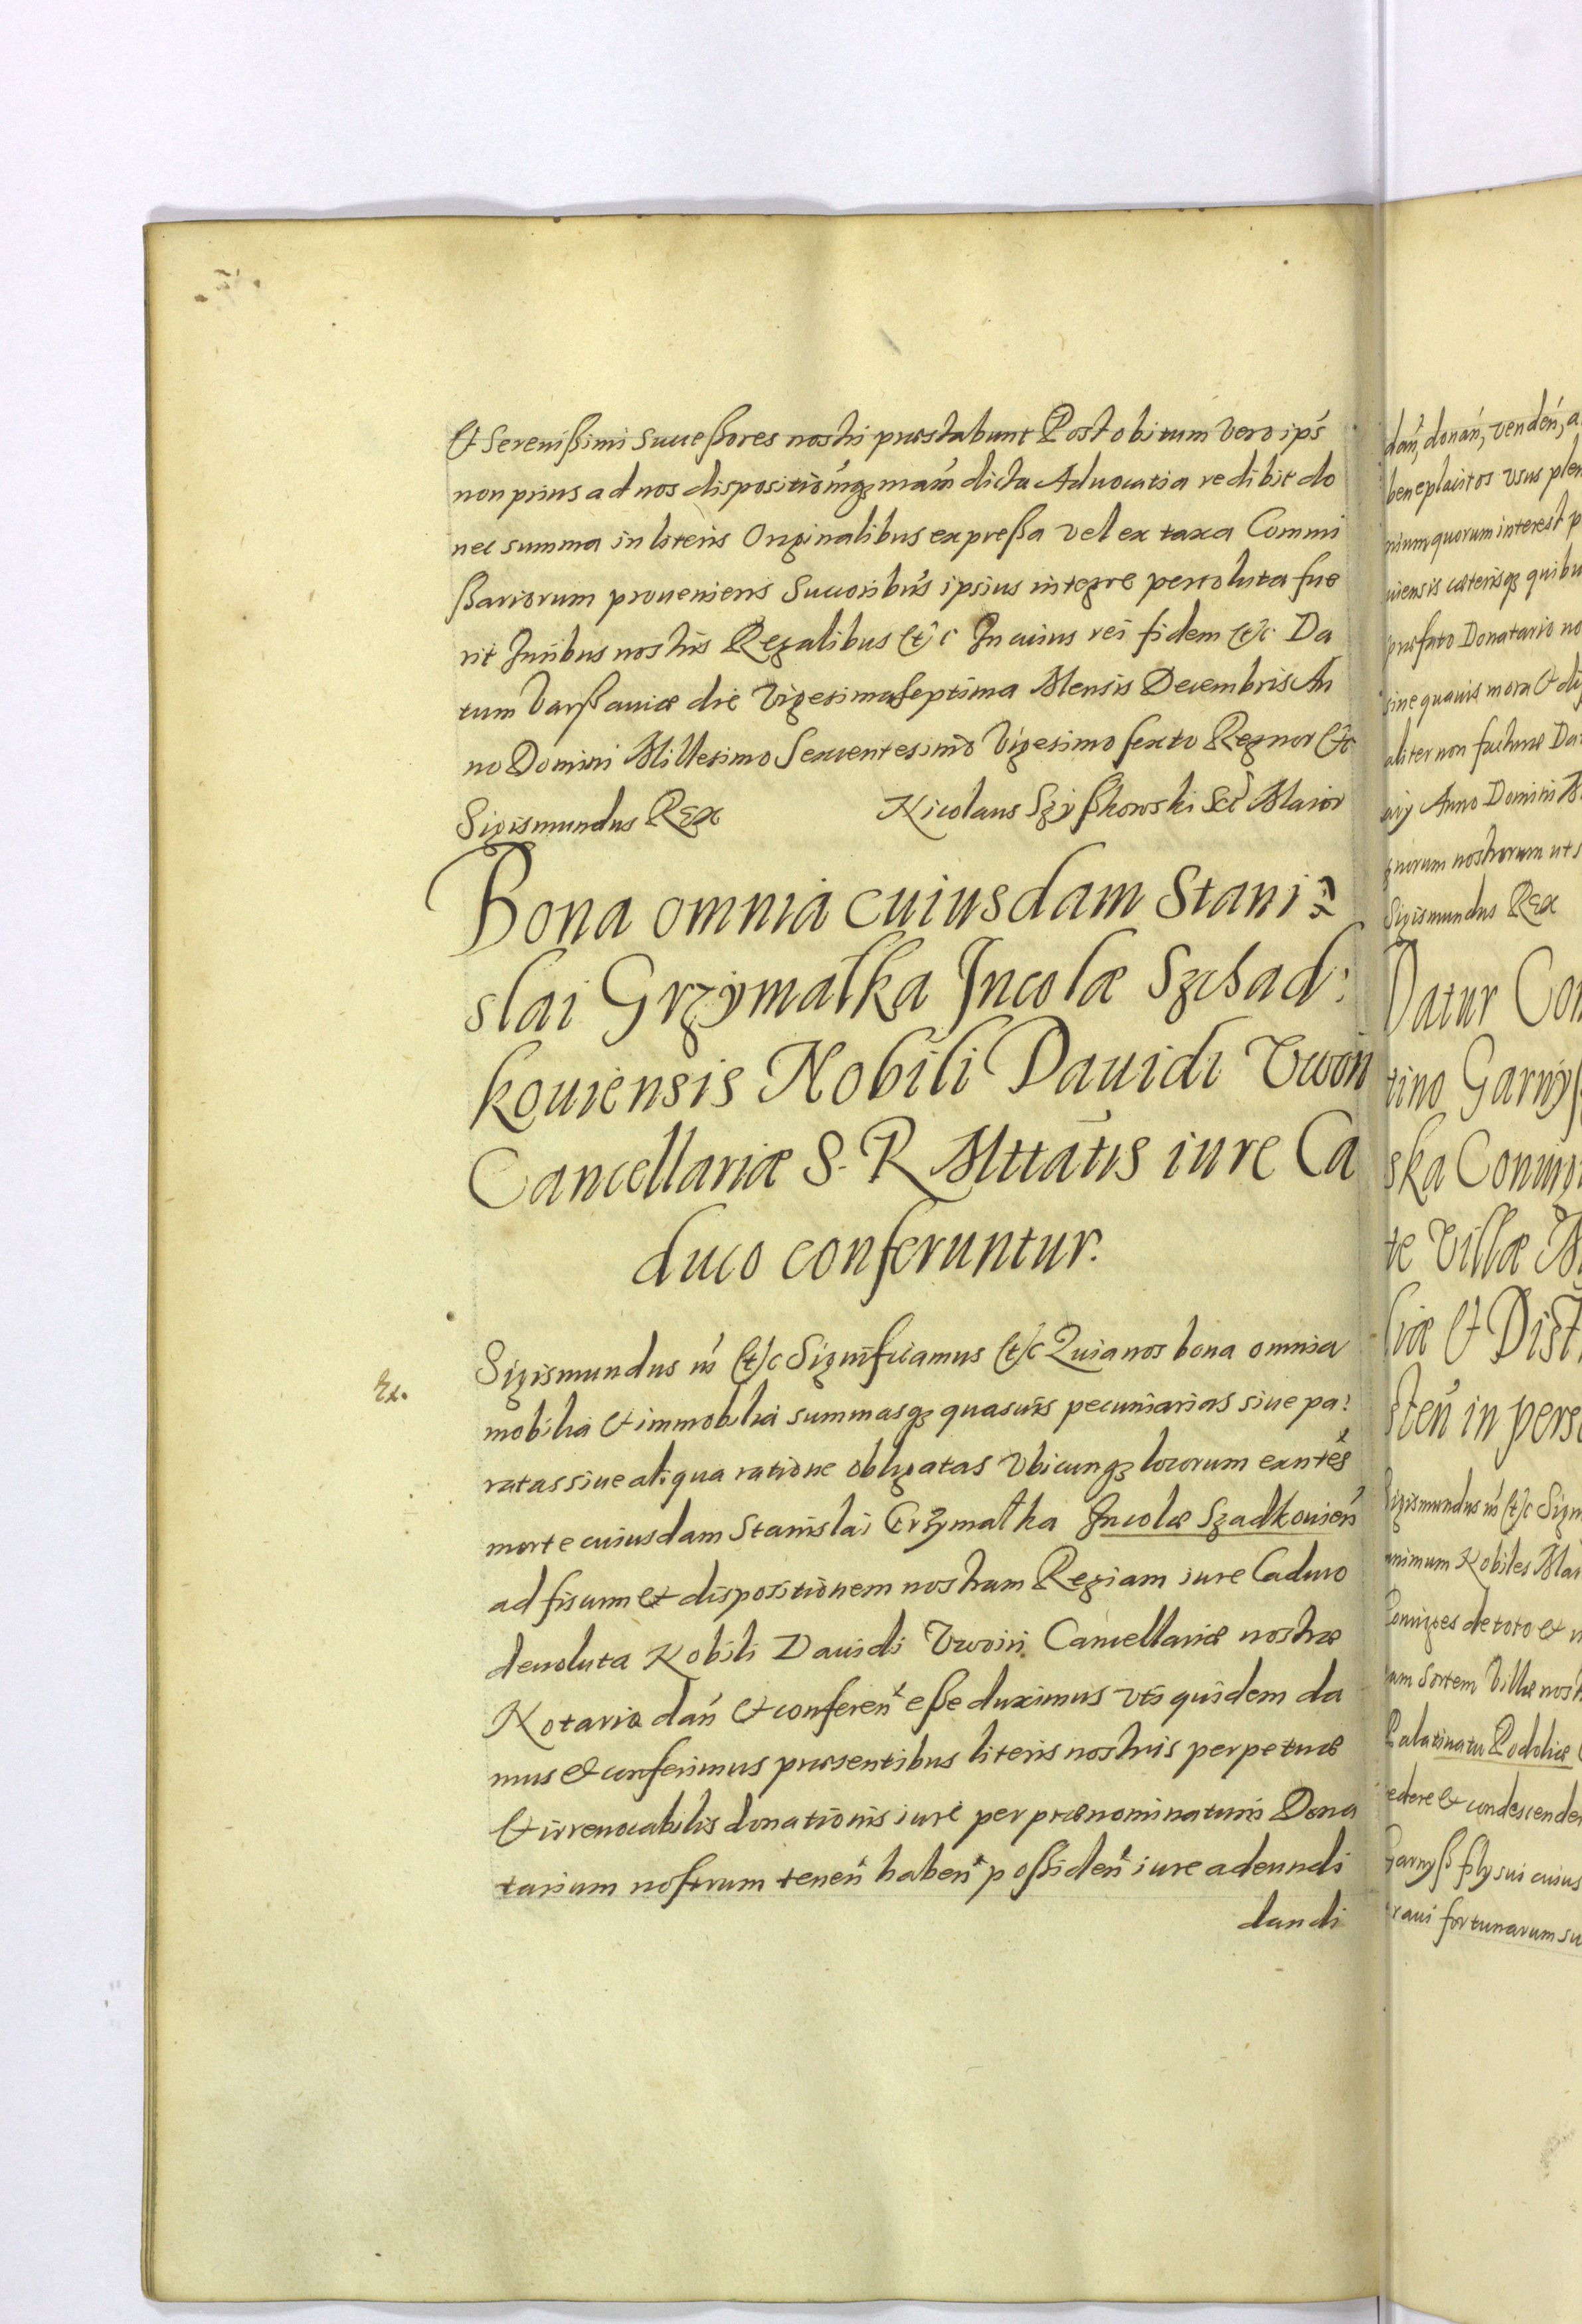 Et Serenißimi Succeßores nostri præstabunt Post obitum vero ips̃
non prius ad nos dispositionẽqȝ nrãm dicta Aduocatia redibit do
nec summa in literis Originalibus expreßa vel ex taxa Commi
ßariorum proueniens Succoribus ipsius integre persoluta fue
rit Juribus nostris Regalibus etc In cuius rei fidem etc Da
tum Varßauiæ die Vigesimaseptima Mensis Decembris An
no Domini Millesimo Sexcentesimo Vigesimo sexto Regnor etc
Sigismundus REX Nicolaus Szyßkowski Sec Maior
Bona omnia cuiusdam Stani:
slai Grzymałka Incolæ Szchad:
kouiensis Nobili Dauidi Vwoin
Cancellariæ S. R Mttãtis iure Ca
duco conferuntur.
Sigismundus iii etc Significamus etc Quia nos bona omnia
mobilia et immobilia summasqȝ quasuis pecuniarias siue pa:
ratas siue aliqua ratione obligatas Vbicunqȝ locorum exntẽs
Ex.
morte cuiusdam Stanislai Grzymałka Incolæ Szadkouien̄
ad fiscum et dispositionem nostram Regiam iure Caduco
deuoluta Nobili Dauidi Vwoin Cancellariæ nostræ
Notario dan̄ et conferen̄ eße duximus vti quidem da
mus et conferimus præsentibus literis nostris perpetuæ
et irreuocabilis donationis iure per prænominatum Dona
tarium nostrum tenen̄ haben̄ poßiden̄ iure adeundi
dandi
dan̄, donan̄, venden̄, a
beneplacitos vsus plen
nium quorum interest p
uiensis cæterisqȝ quibu
præfato Donatario no
sine quauis mora et di
aliter non facturæ Da
arij Anno Domini M
gnorum nostrorum ut s
Sigismundus REX
Datur Con
tino Garnyß
ska Coniug
te Villæ M
liæ et Dist
sten̄ in perso
Sigismundus iii etc Sign
animum Nobiles Mar
Coniuges de toto et
am Sortem Villæ nost
Palatinatu Podoliæ
cedere et condescende
Garnyß filij sui cuius
raui fortunarum su